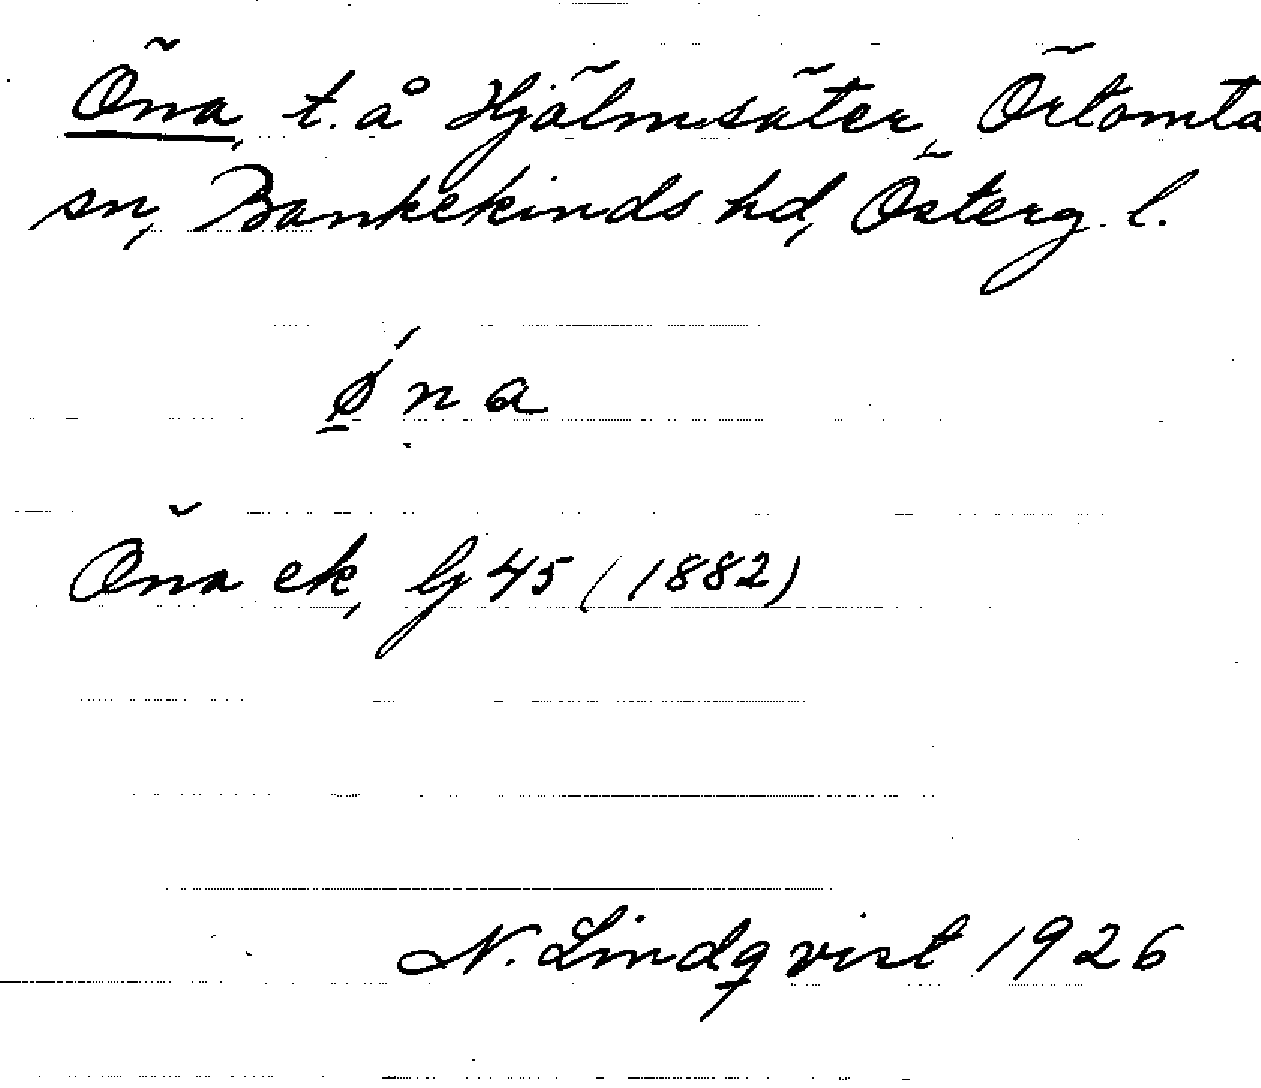 Öna, t. å Hjälmsäter, Örtomta
sn, Bankekinds hd, Österg. l.
ǿna
Öna ek, Gj 45 (1882)
N. Lindqvist 1926